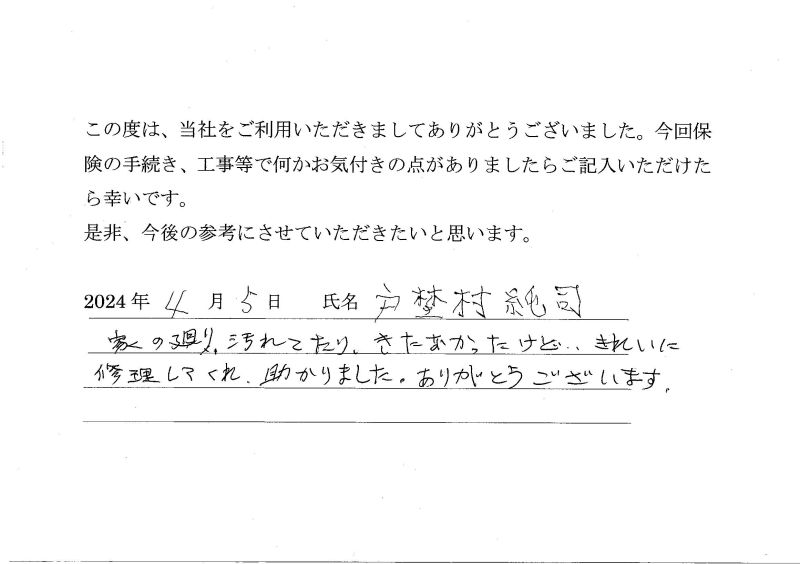 この度は、当社をご利用いただきましてありがとうございました。今回保
険の手続き、工事等で何かお気付きの点がありましたらご記入いただけた
ら幸いです。
是非、今後の参考にさせていただきたいと思います。
2024年 4月 5日 氏名 戸 村 純司
家の廻り、汚れてたり、きたなかったけど、、きれいに
修理してくれ、助かりました。ありがとうございます。